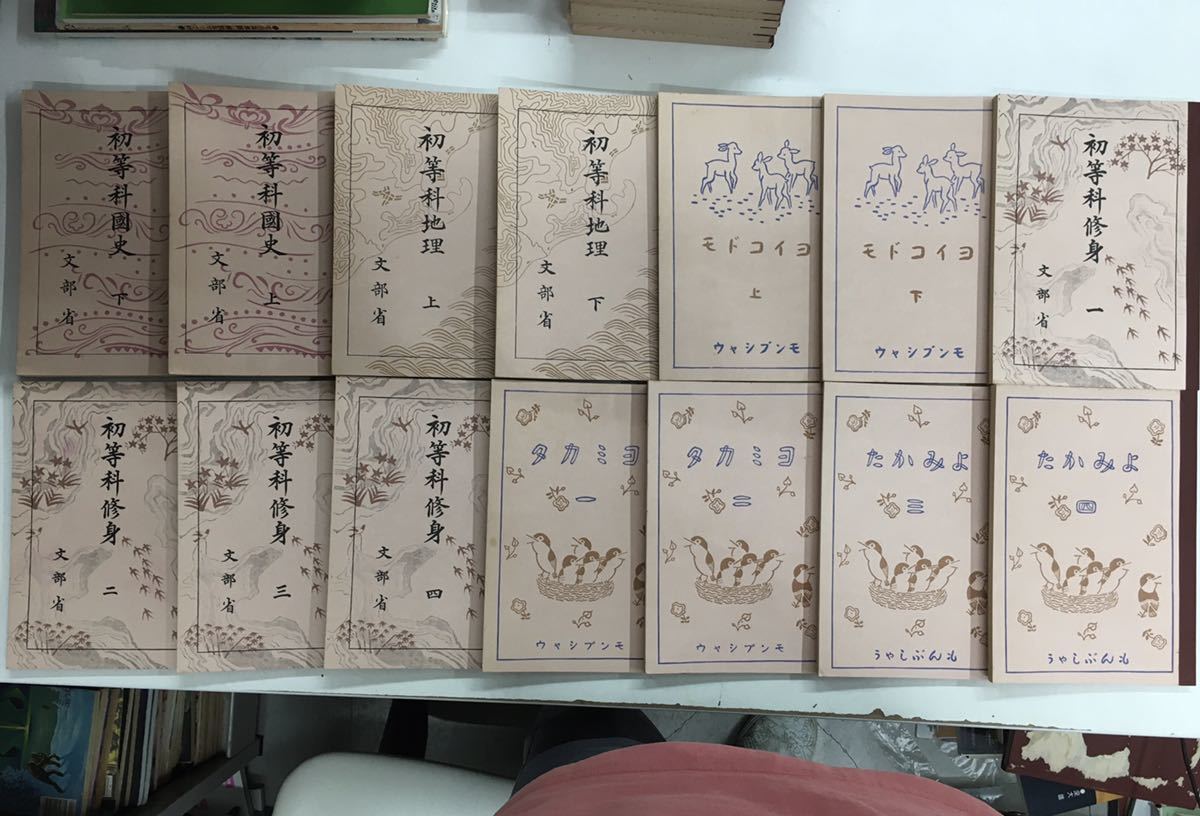 初等科國史 下
文部省
初等科國史 上
文部省
初等科地理 上
文部省
初等科地理 下
文部省
ヨイコドモ
上
モンブシャウ
ヨイコドモ
下
モンブシャウ
初等科修身 一
文部省
初等科修身 二
文部省
初等科修身 三
文部省
初等科修身 四
文部省
ヨミカタ
一
モンブシャウ
ヨミカタ
二
モンブシャウ
よみかた
三
もんぶしゃう
よみかた
四
もんぶしゃう